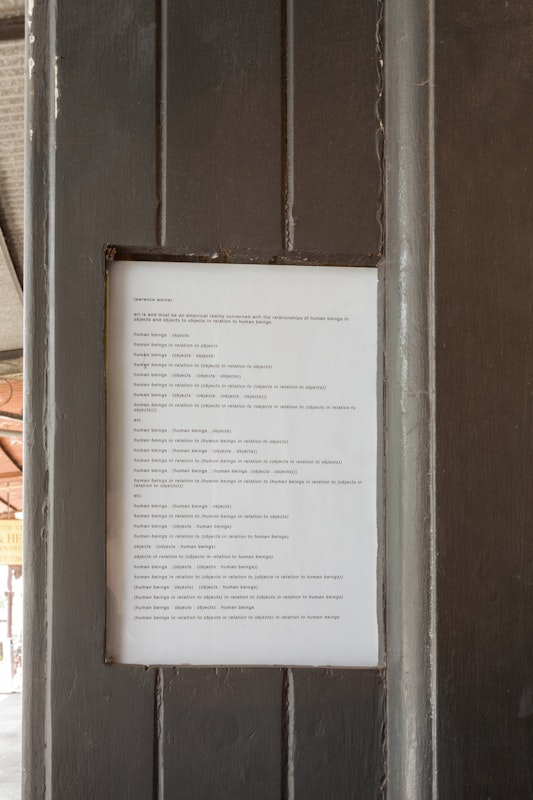 lawrence weiner:
art is and must be an empirical reality concerned with the relationships of human beings to
objects and objects to objects in relation to human beings
human beings : objects
human beings in relation to objects
human beings : (objects : objects)
human beings in relation to (objects in relation to objects)
human beings : (objects : (objects : objects))
human beings in relation to (objects in relation to (objects in relation to objects))
human beings : (objects : (objects : (objects : objects)))
human beings in relation to (objects in relation to (objects in relation to (objects in relation to
objects)))
etc.
human beings : (human beings : objects)
human beings in relation to (human beings in relation to objects)
human beings : (human beings : (objects : objects))
human beings in relation to (human beings in relation to (objects in relation to objects))
human beings : (human beings : (human beings : (objects : objects)))
human beings in relation to (human beings in relation to (human beings in relation to (objects in
relation to objects)))
etc.
human beings : (human beings : objects)
human beings in relation to (human beings in relation to objects)
human beings : (objects : human beings)
human beings in relation to (objects in relation to human beings)
objects : (objects : human beings)
objects in relation to (objects in relation to human beings)
human beings : (objects : (objects : human beings))
human beings in relation to (objects in relation to (objects in relation to human beings))
(human beings : objects) : (objects : human beings)
(human beings in relation to objects) in relation to (objects in relation to human beings)
(human beings : objects : objects) : human beings
(human beings in relation to objects in relation to objects) in relation to human beings